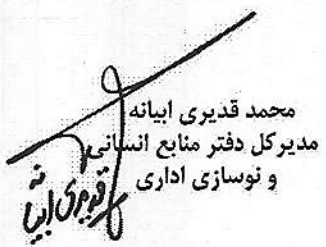 محمد قدیری ابیانه
مدیرکل دفتر منابع انسانی
و نوسازی اداری
قدیری ابیانه